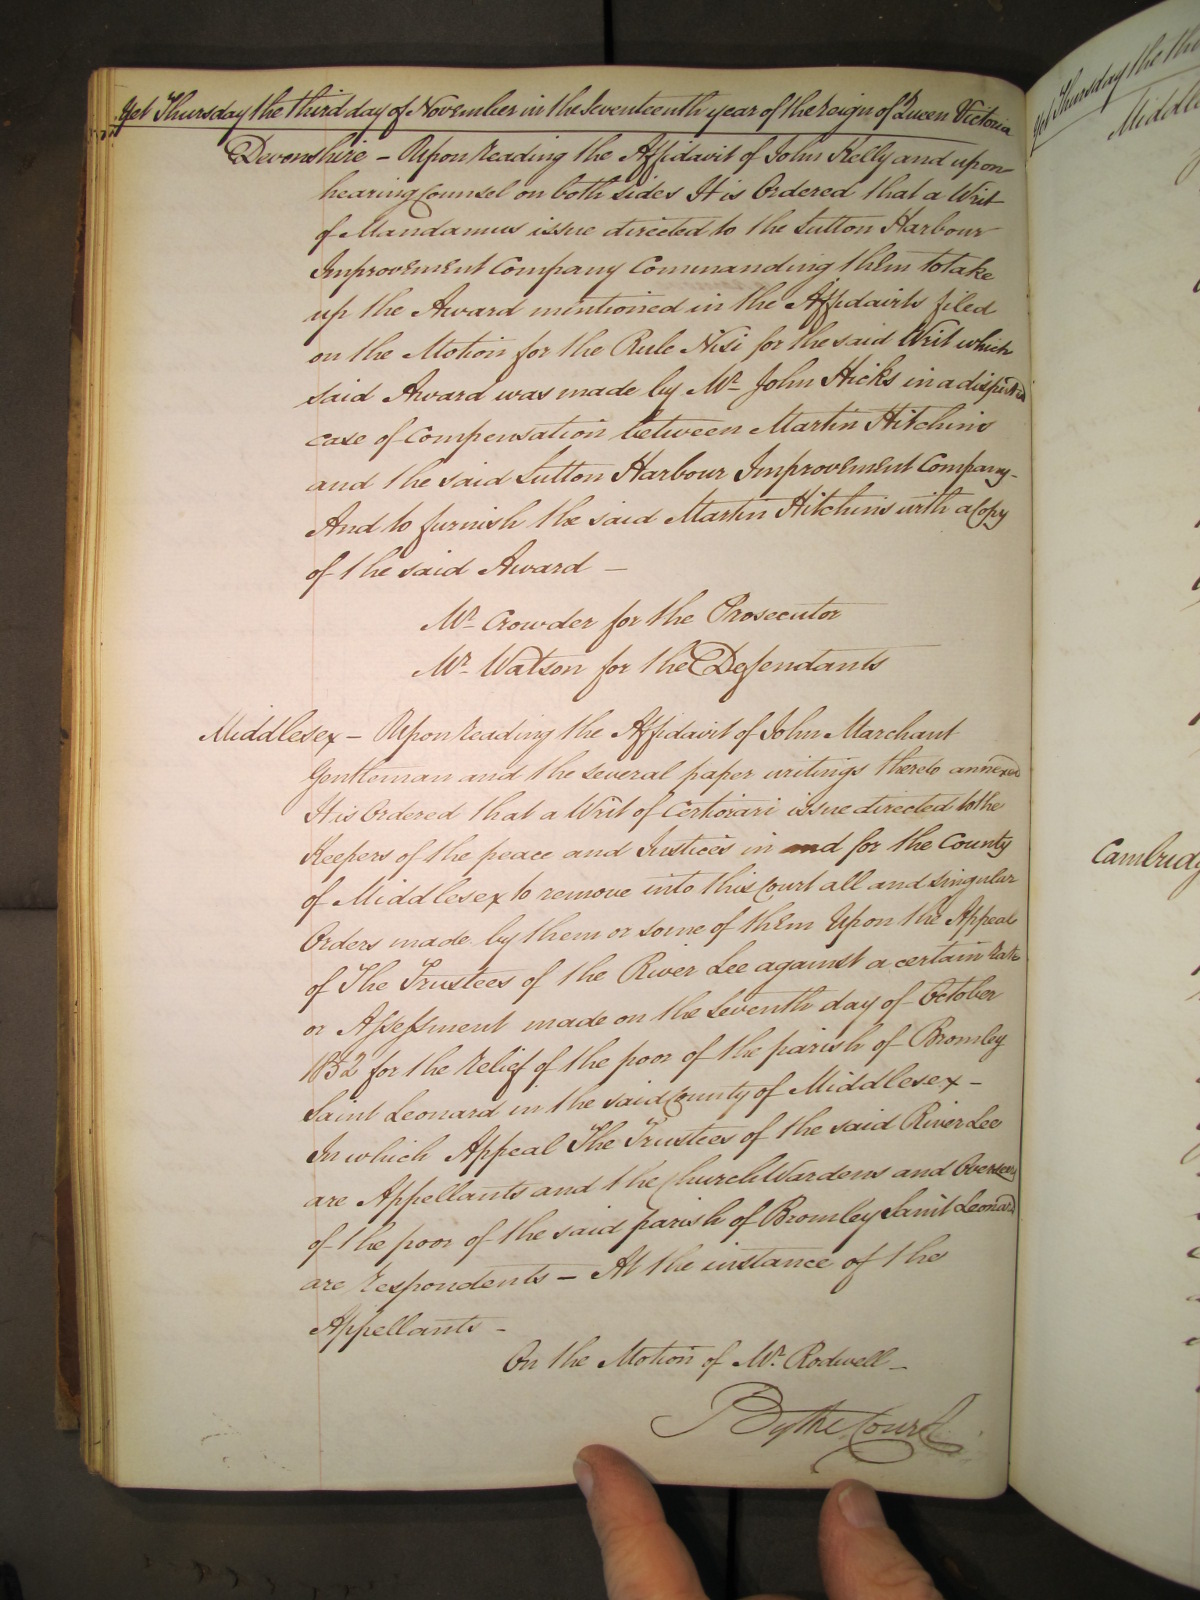 Yet Thursday the third day of November in the Seventeenth year of the reign of Queen Victoria
Devonshire – Upon reading the Affidavit of John Kelly and upon
hearing Counsel on both sides It is Ordered that a Writ
of Mandamus issue directed to the Sutton Harbour
Improvement Company Commanding them to take
up the Award mentioned in the Affidavits filed
on the Motion for the Rule Nisi for the said Writ which
said Award was made by Mr. John Hicks in a disputed
case of Compensation between Martin Hitchins
and the said Sutton Harbour Improvement Company –
And to furnish the said Martin Hitchins with a Copy
of the said Award –
Mr. Crowder for the Prosecutor
Mr. Watson for the Defendants
Middlesex – Upon reading the Affidavit of John Marchant
Gentleman and the several paper writings thereto annexed
It is Ordered that a Writ of Certiorari issue directed to the
Keepers of the peace and Justices in and for the County
of Middlesex to remove into this Court all and singular
Orders made by them or some of them Upon the Appeal
of The Trustees of the River Lee against a certain Rate
or Assessment made on the Seventh day of October
1852 for the relief of the poor of the parish of Bromley
Saint Leonard in the said County of Middlesex –
In which Appeal The Trustees of the said River Lee
are Appellants and the Church Wardens and Overseers
of the poor of the said parish of Bromley Saint Leonard
are Respondents – At the instance of the
Appellants –
On the Motion of Mr. Rodwell –
By the Court
Yet Thursday the thi
Middle
Cambridg